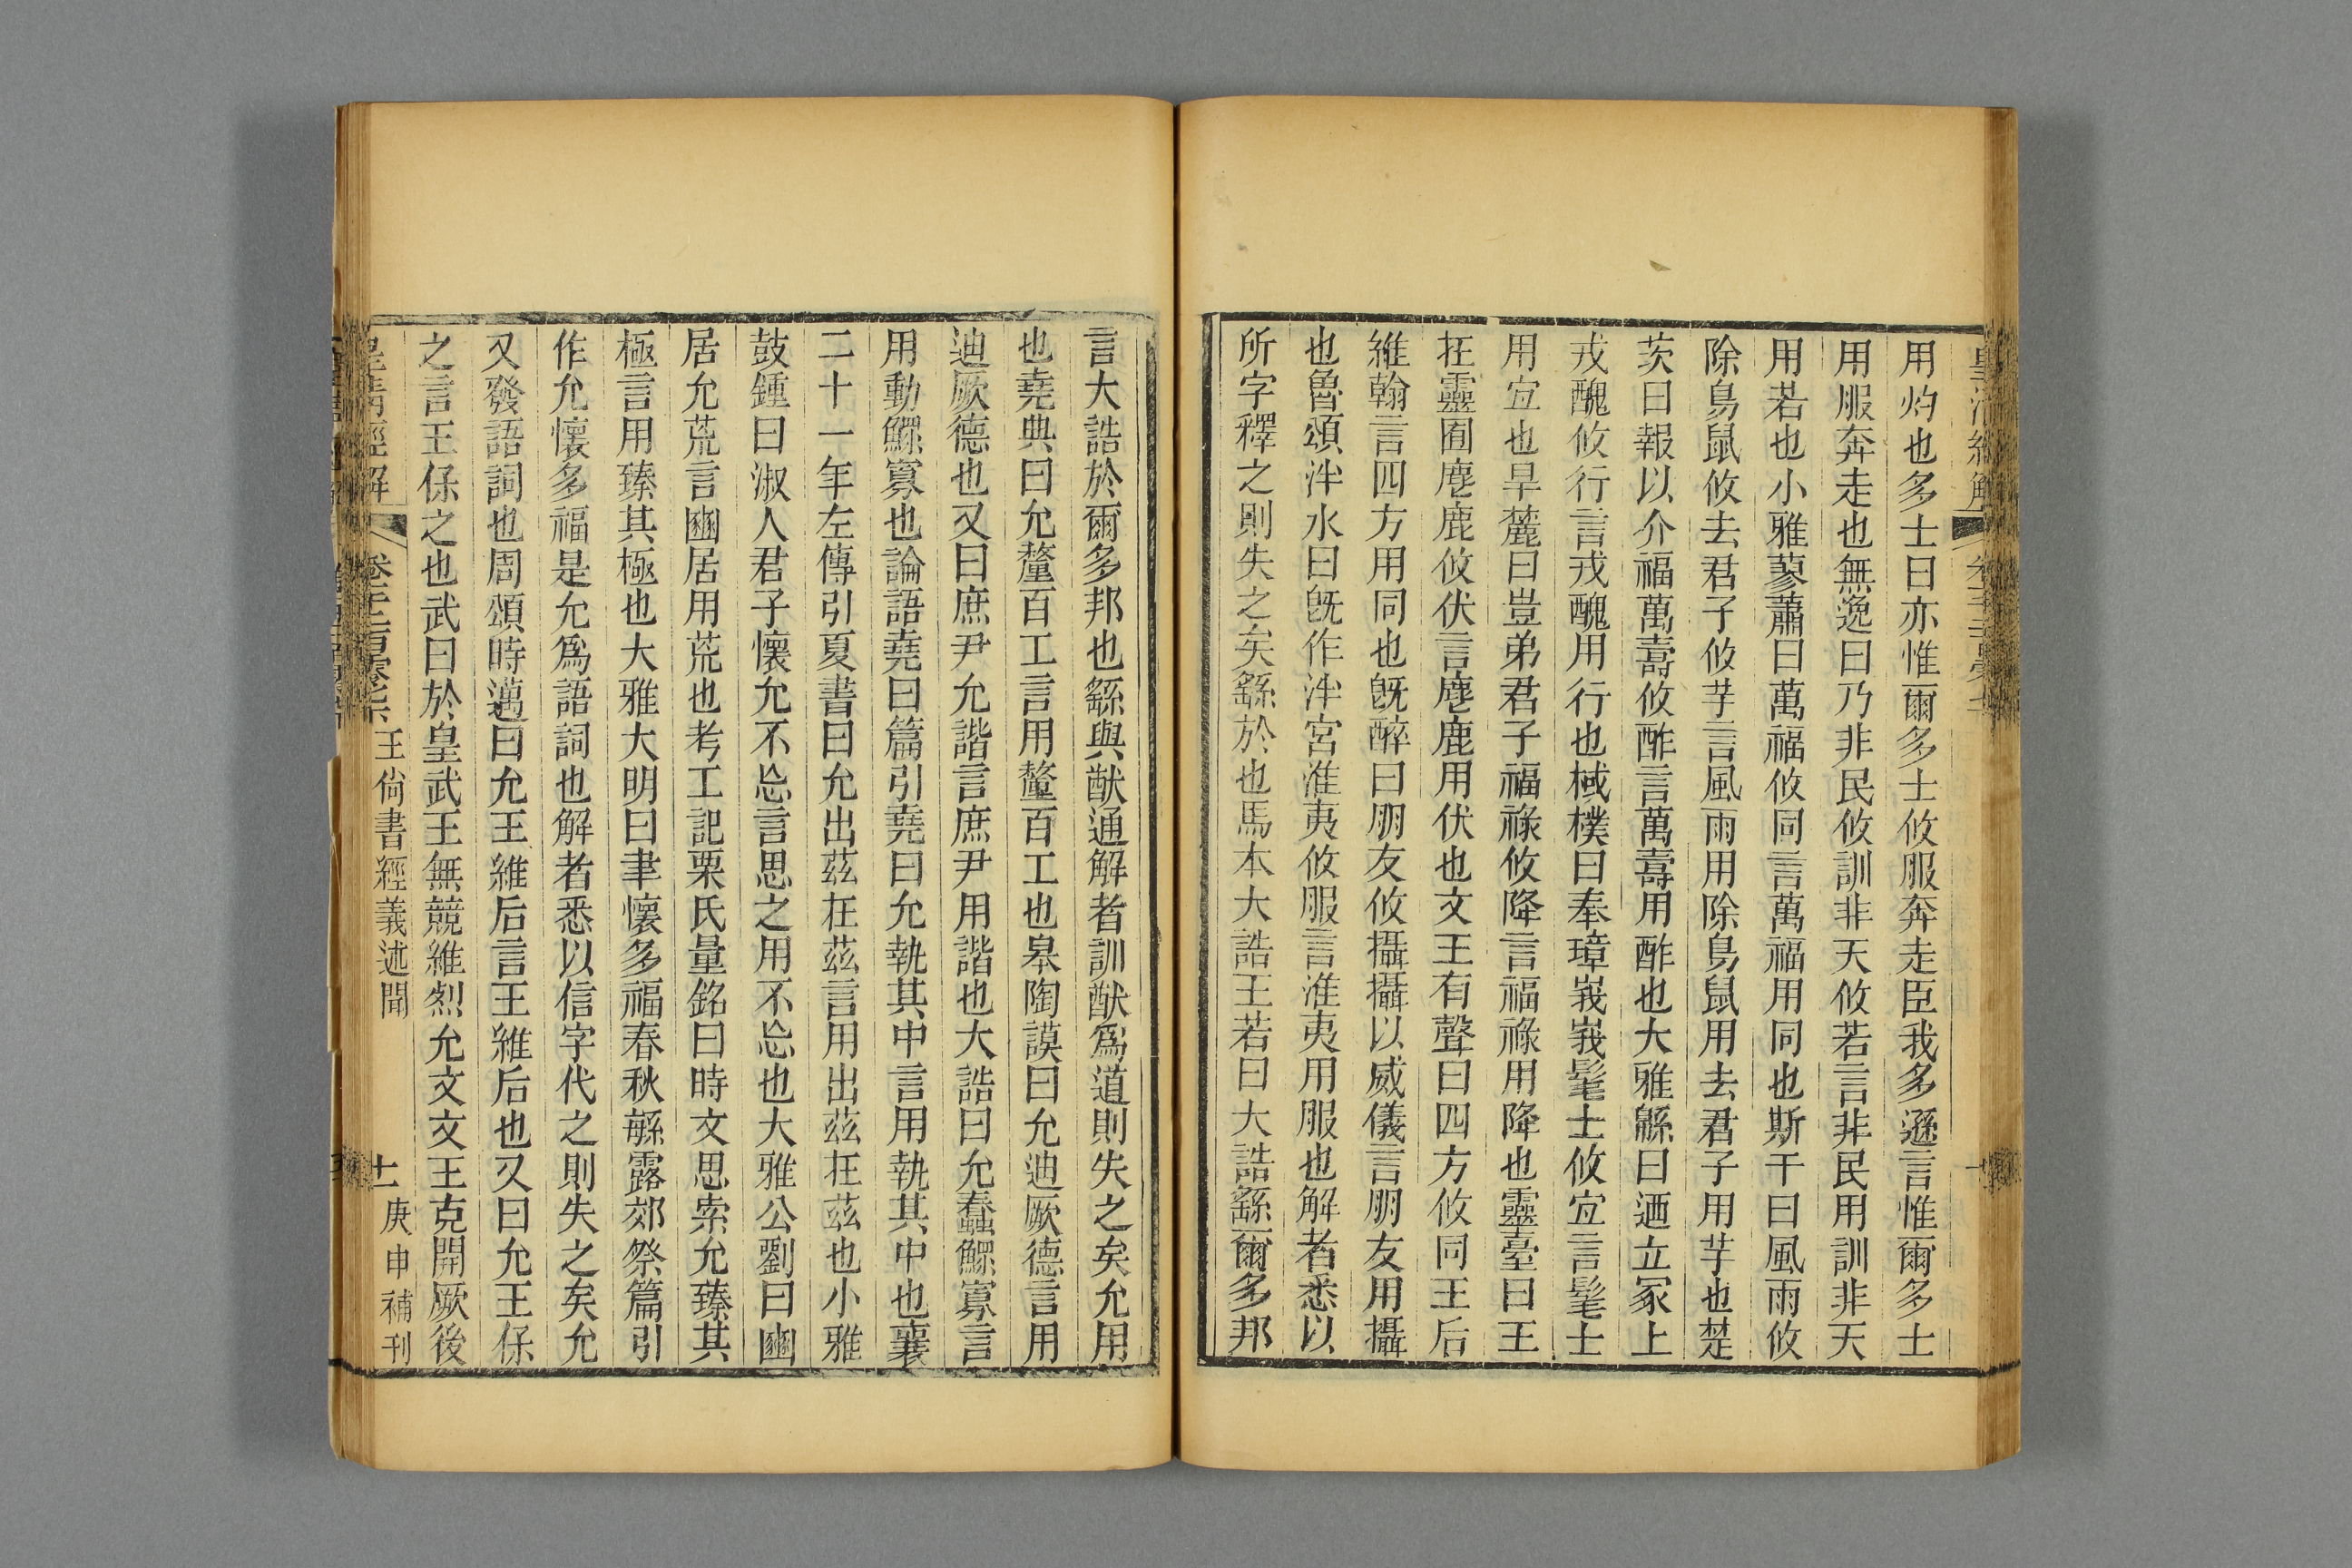 用灼也多士曰亦惟爾多士攸服奔走臣我多遜言惟爾多士
用服奔走也無逸曰乃非民攸訓非天攸若言非民用訓非天
用若也小雅蓼蕭曰萬福攸同言萬福用同也斯干曰風雨攸
除鳥鼠攸去君子攸芋言風雨用除鳥鼠用去君子用芋也楚
茨曰報以介福萬壽攸酢言萬壽用酢也大雅緜曰迺立冢土
戎醜攸行言戎醜用行也棫樸曰奉璋峩峩髦士攸宜言髦士
用宜也旱麓曰豈弟君子福祿攸降言福祿用降也靈臺曰王
在靈囿麀鹿攸伏言麀鹿用伏也文王有聲曰四方攸同王后
維翰言四方用同也旣醉曰朋友攸攝攝以威儀言朋友用攝
也魯頌泮水曰旣作泮宮淮夷攸服言淮夷用服也解者悉以
所字釋之則失之矣繇於也馬本大誥王若曰大誥繇爾多邦
言大誥於爾多邦也繇與猷通解者訓猷爲道則失之矣允用
也堯典曰允釐百工言用釐百工也皋陶謨曰允迪厥德言用
迪厥德也又曰庶尹允諧言庶尹用諧也大誥曰允蠢鰥寡言
用動鰥寡也論語堯曰篇引堯曰允執其中言用執其中也襄
二十一年左傳引夏書曰允出茲在茲言用出茲在茲也小雅
鼓鍾曰淑人君子懷允不忘言思之用不忘也大雅公劉曰豳
居允荒言豳居用荒也考工記㮚氏量銘曰時文思索允臻其
極言用臻其極也大雅大明曰聿懷多福春秋緐露郊祭篇引
作允懷多福是允爲語詞也解者悉以信字代之則失之矣允
又發語詞也周頌時邁曰允王維后言王維后也又曰允王保
之言王保之也武曰於皇武王無競維烈允文文王克開厥後
皇清經解 卷千二百零七 王尙書經義述聞 十一 庚申補刊